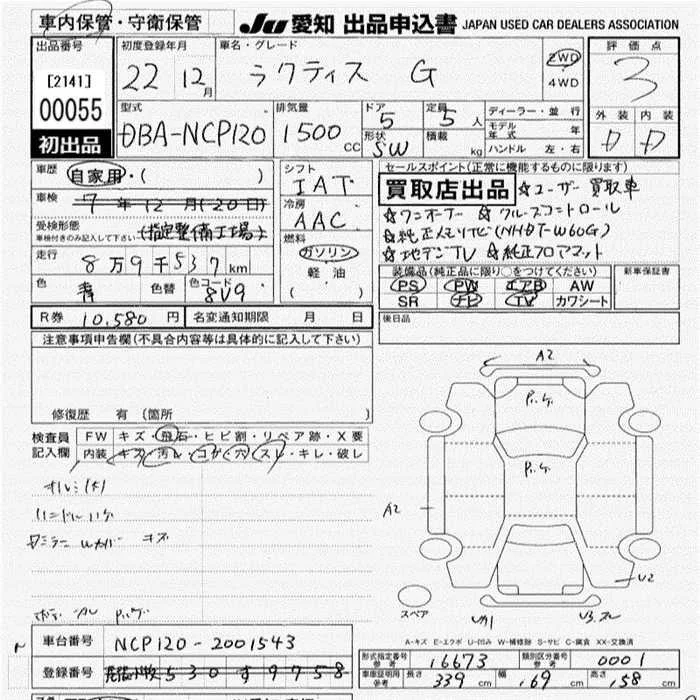 車内保管・守衛保管
JU 愛知 出品申込書 JAPAN USED CAR DEALERS ASSOCIATION
出品番号
[2141]
00055
初出品
初度登録年月
22 12月
車名・グレード
ラクティス G
2WD
4WD
評価点
3
外装 内装
D D
型式
DBA-NCP120
排気量
1500 CC
ドア
5
形状
SW
定員
5人
積載
kg
ディーラー・並行
モデル年式 年
ハンドル 左・右
車歴
自家用・( )
車検
7年12月(20日)
受検形態
車検付きのみ記入して下さい
(指定整備工場)
走行
8万9千537km
色
青
色替
色コード
8V9
シフト
IAT
冷房
AAC
燃料
ガソリン
軽油
( )
セールスポイント(正常に機能するものに限ります)
買取店出品 ☆ユーザー買取車
☆ワンオーナー ☆クルーズコントロール
☆純正メモリナビ(NHDT-W60G)
☆地デジTV ☆純正フロアマット
装備品(純正品に限り○をつけてください)
PS PW エアB AW
SR ナビ TV カワシート
新車保証書
R券 10,580円
名変通知期限 月 日
後日品
注意事項申告欄(不具合内容等は具体的に記入して下さい)
修復歴 有 (箇所 )
検査員記入欄
FW キズ・飛石・ヒビ割・リペア跡・X要
内装 キズ・汚レ・コゲ・穴・スレ・キレ・破レ
ハンドルハゲ
キズ
A2
A2
U2
スペア
A-キズ E-エクボ U-凹み W-補修跡 S-サビ C-腐食 XX-交換済
車台番号
NCP120-2001543
登録番号
530 す 9758
型式指定番号
参考
16673
類別区分番号
参考
0001
車庫証明用
参考
長さ 339cm
幅 169cm
高さ 158cm